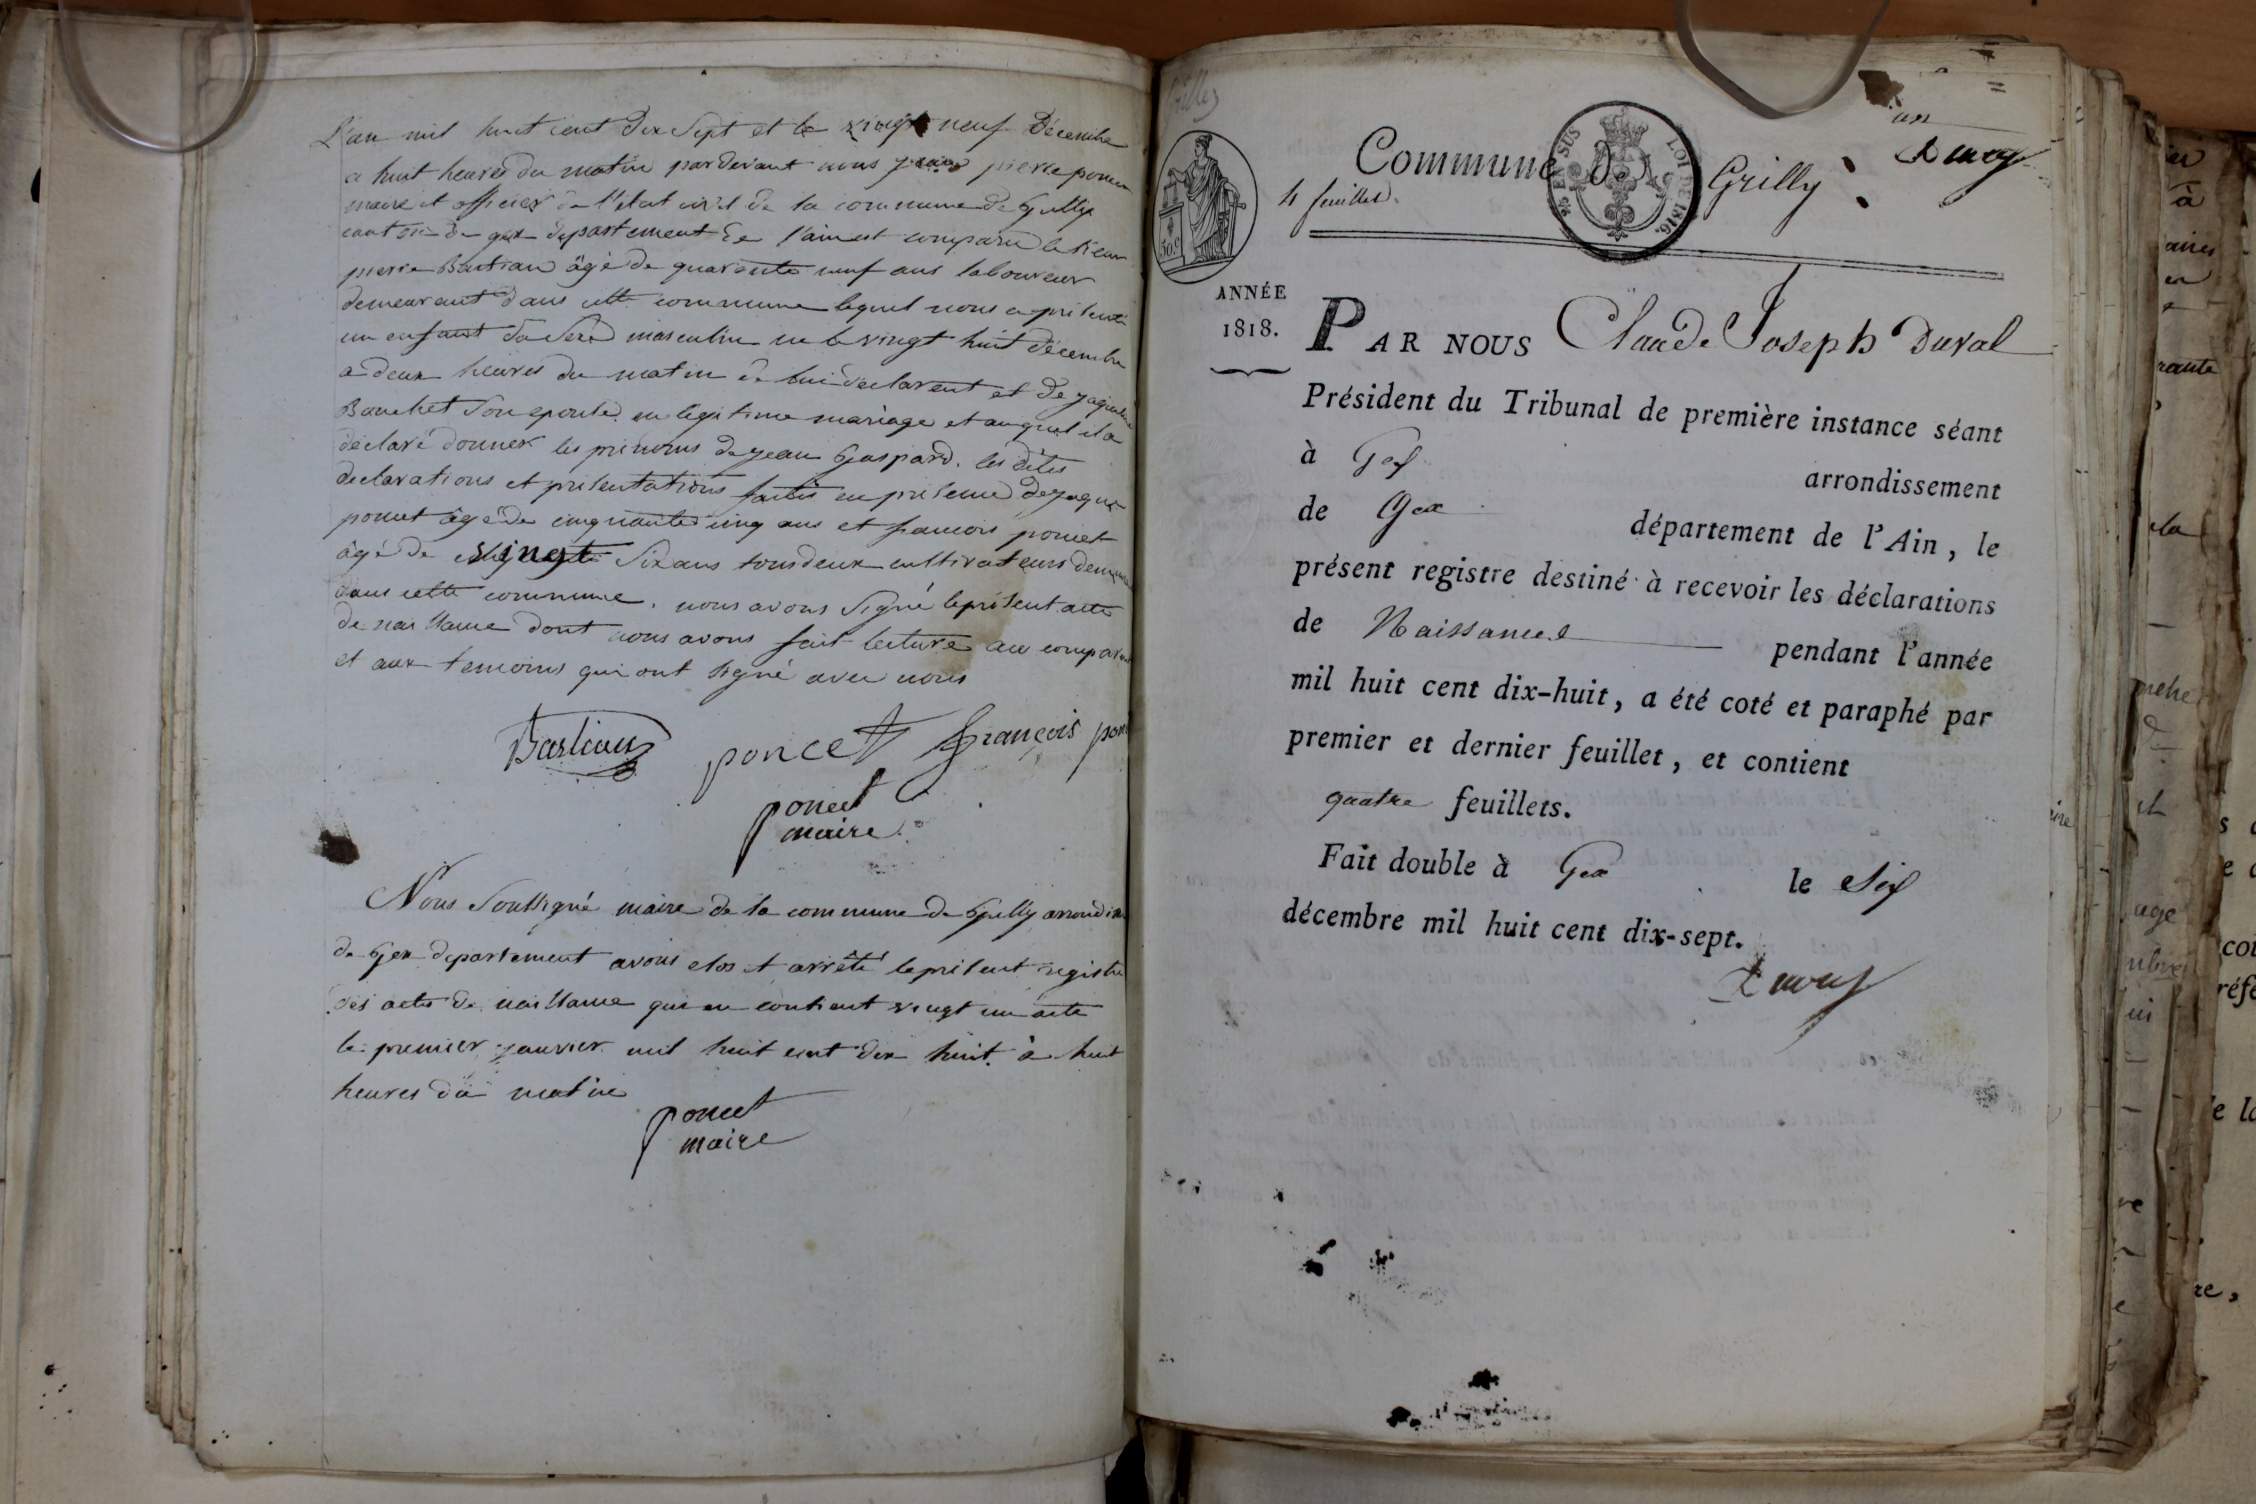 L'an mil huit cent dix sept et le vingt neuf Décembre
a huit heures du matin pardevant nous pierre poncet
maire et officier de l'etat civil de la commune de Grilly
canton de gex departement de l'ain est comparu le sieur
pierre Bastian âgé de quarante neuf ans laboureur
demeurant dans cette commune lequel nous a présenté
un enfant du sexe masculin né le vingt huit décembre
a deux heures du matin de lui déclarent et de jaqueline
Bouchet son epouse en legitime mariage et auquel il a
déclaré donner les prenoms de jean Gaspard. les dites
declarations et presentations faites en presence de jaque
poncet âgé de cinquante cinq ans et francois poncet
âgé de vingt six ans tous deux cultivateurs demeurant
dans cette commune. nous avons signé le présent acte
de naissance dont nous avons fait lecture au comparant
et aux temoins qui ont signé avec nous
Bastian poncet françois pon
poncet
maire
Nous soussigné maire de la commune de Grilly arrondis
de Gex departement avons clos et arrêté le présent registre
des actes de naissance qui en contient vingt un acte
le premier janvier mil huit cent dix huit à huit
heures du matin
poncet
maire
Grilly
un
Duval
Commune de Grilly
4 feuillets.
EN SUS LOI DE 1816.
50.c
ANNÉE
1818.
PAR NOUS Claude Joseph Duval
Président du Tribunal de première instance séant
à Gex arrondissement
de Gex département de l'Ain, le
présent registre destiné à recevoir les déclarations
de Naissances pendant l'année
mil huit cent dix-huit, a été coté et paraphé par
premier et dernier feuillet, et contient
quatre feuillets.
Fait double à Gex le six
décembre mil huit cent dix-sept.
Duval